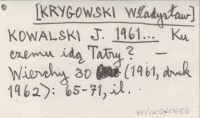 [KRYGOWSKI Władysław]
KOWALSKI J. 1961... Ku
czemu idą Tatry? —
Wierchy 30 (1961, druk
1962): 65-71, il.